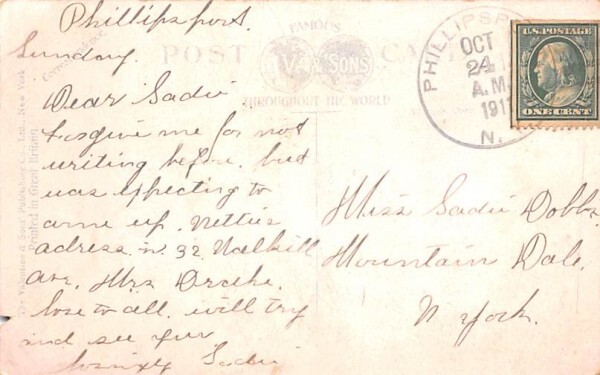 Phillipsport.
Sunday.
Dear Sadie
forgive me for not
writing before, but
was expecting to
come up, Netties
adress is 32 Wallkill
ave, Mrs Drake.
love to all. will try
and see you
Sadie
POST CARD
FAMOUS
V & SONS
THROUGHOUT THE WORLD
Correspondence.
The Valentine & Sons Publishing Co., Ltd., New York
Printed in Great Britain
PHILLIPSP
OCT
24
A.M.
191
N.
U.S. POSTAGE
ONE CENT
Miss Sadie Dobbs.
Mountain Dale.
N. York.